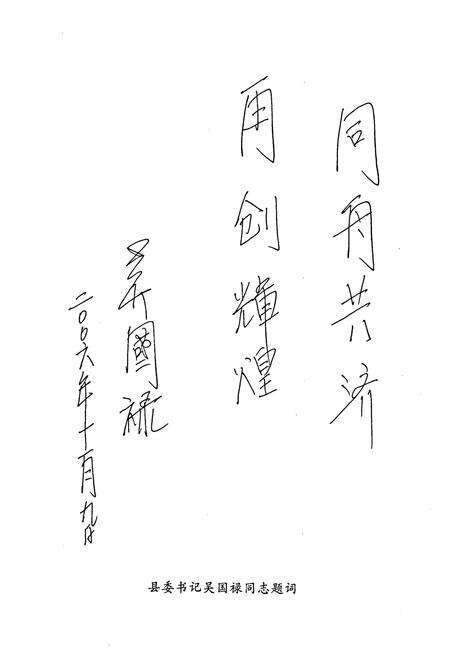 同舟共济
再创輝煌
吴國禄
二〇〇六年十月九日
县委书记吴国禄同志题词